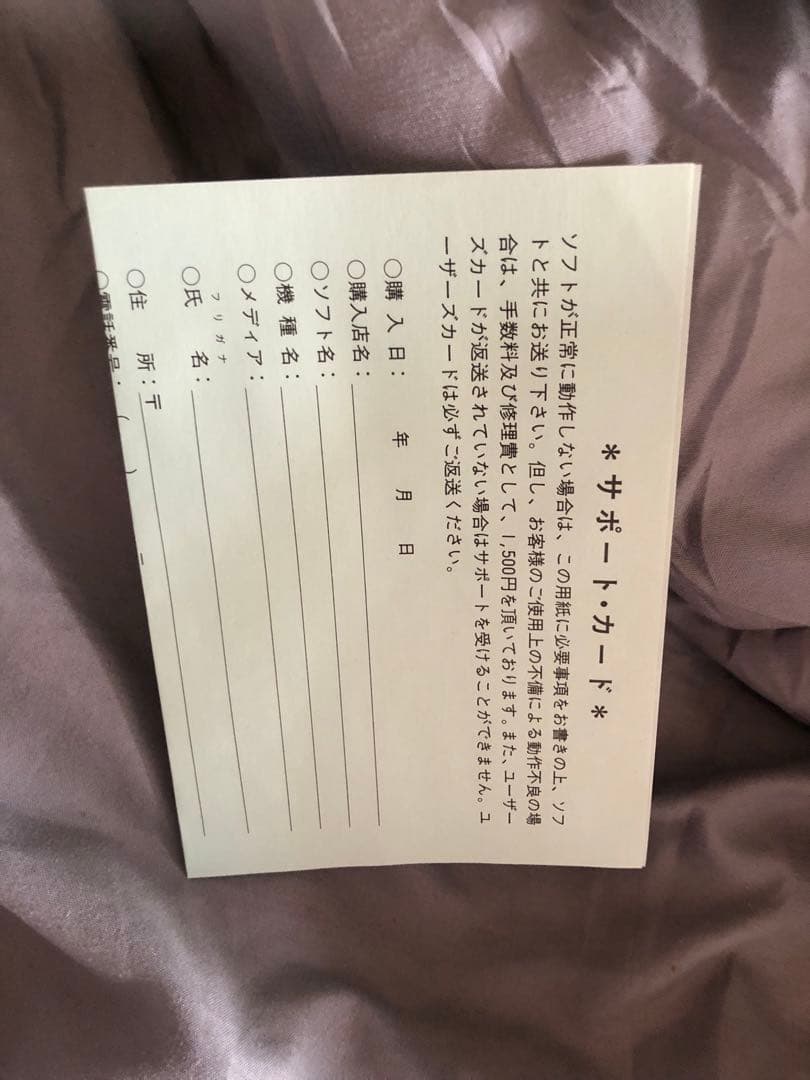 ＊サポート・カード＊
ソフトが正常に動作しない場合は、この用紙に必要事項をお書きの上、ソフ
トと共にお送り下さい。但し、お客様のご使用上の不備による動作不良の場
合は、手数料及び修理費として、1,500円を頂いております。また、ユーザー
ズカードが返送されていない場合はサポートを受けることができません。ユ
ーザーズカードは必ずご返送ください。
○購入日：　年　月　日
○購入店名：
○ソフト名：
○機種名：
○メディア：
フリガナ
○氏名：
○住所：〒
○電話番号：（　）　－